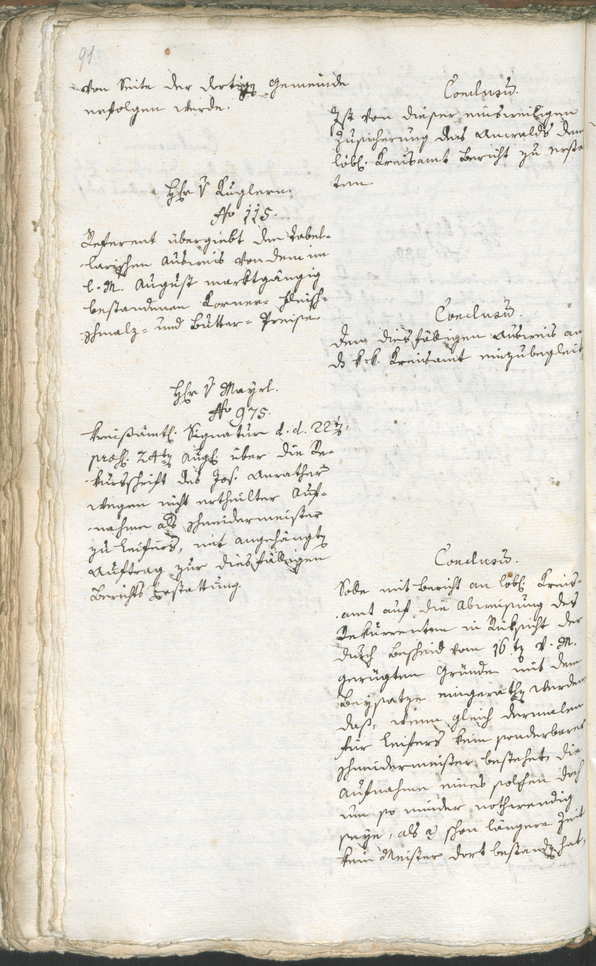 91
von Seite der dortigen Gemeinde
erfolgen werde.
Conclusum.
Ist von dieser einsweiligen
Zusicherung des Anwalds dem
löbl. Kreisamt Bericht zu erstat
ten.
Hr. v Kuglern.
No 115.
Referent übergiebt den tabel-
larischen Ausweis von dem im
l. M. August marktgängig
bestandenen Körner- Fleisch-
Schmalz- und Butter- Preise.
Conclusum.
Dem diesfälligen Ausweis an
d. k. k. Kreisamt einzubegleit
Hr. v Mayrl.
No 975.
Kreisämtl. Signatur d. d. 22t,
prs. 24t Augt über die Re-
kursschrift des Jos. Anrather
wegen nicht ertheilter Auf-
nahme als Schneidermeister
zu Leifers, mit angehängt
Auftrag zur diesfälligen
Berichts erstattung.
Conclusum.
Habe mit Bericht an löbl. Kreis-
amt auf die Abweisung des
Rekurrenten in Rüksicht der
durch Bescheid vom 16t v. M.
gerügten Gründe mit dem
Beysatze eingerathen werden
daß, wenn gleich dermalen
für Leifers kein sonderbarer
Schneidermeister bestehet, die
Aufnahme eines solchen doch
um so minder nothwendig
seye, als schon längere Zeit
kein Meister dort bestanden hat,